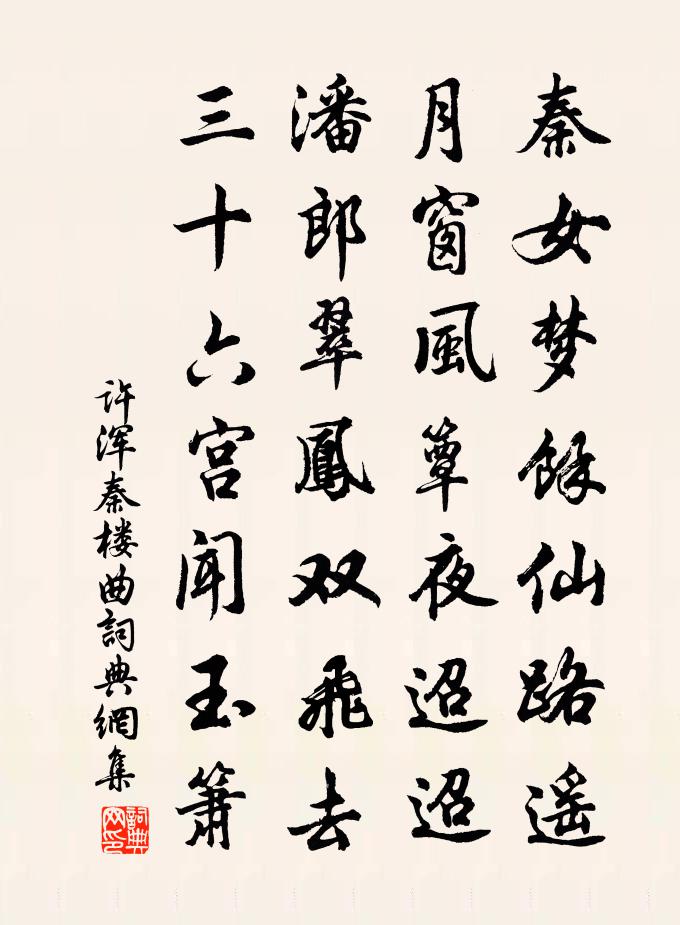 秦女梦餘仙路遥
月窗風簟夜迢迢
潘郎翠鳳双飛去
三十六宫闻玉箫
许浑秦楼曲詞典網集
詞典網印